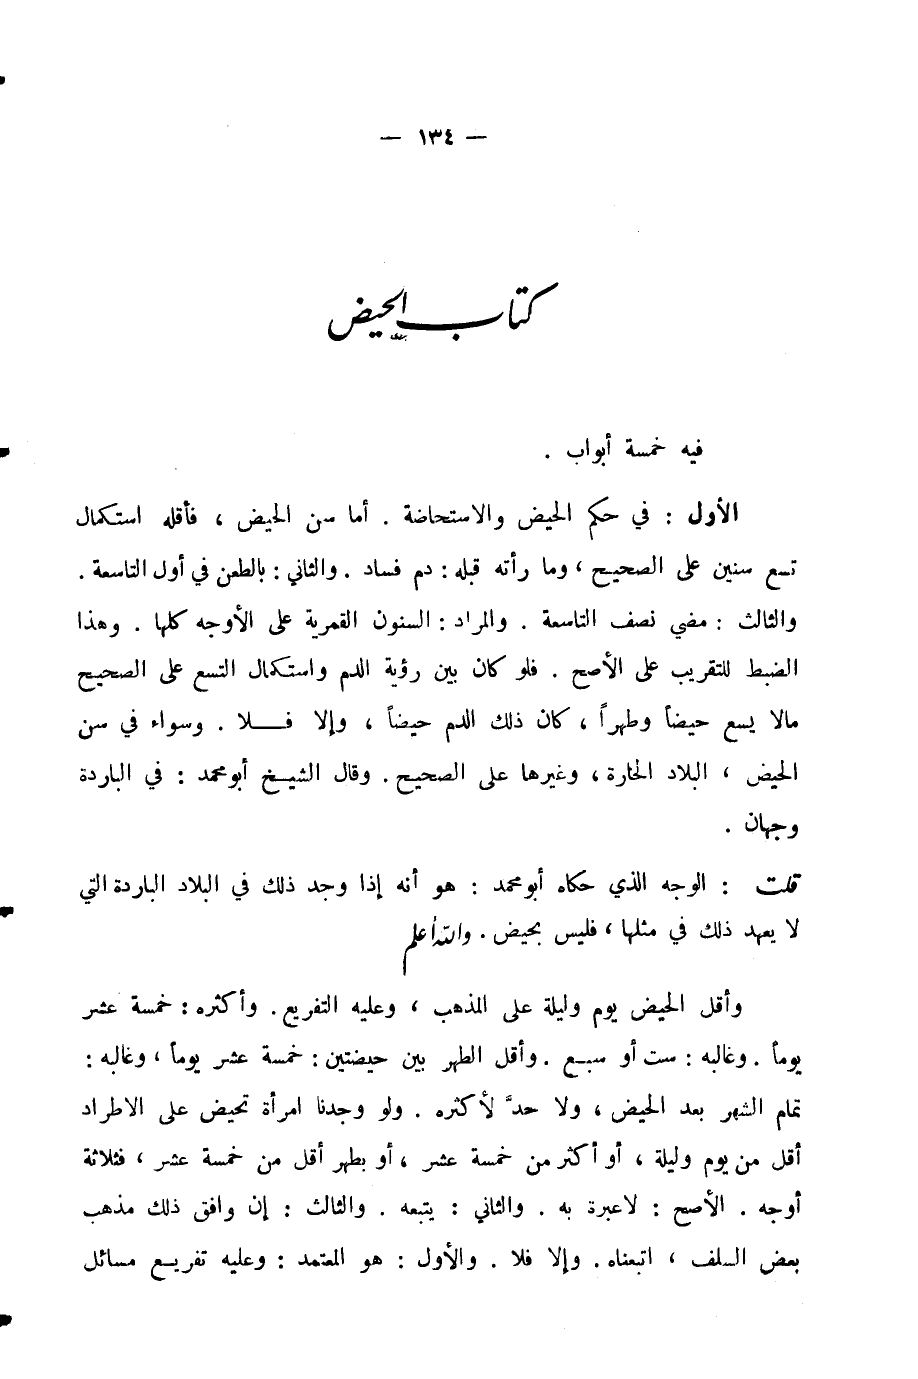 — ١٣٤ —
كتاب الحيض
فيه خمسة أبواب .
الأول : في حكم الحيض والاستحاضة . أما سن الحيض ، فأقله استكمال
تسع سنين على الصحيح ، وما رأته قبله : دم فساد . والثاني : بالطعن في أول التاسعة .
والثالث : مضي نصف التاسعة . والمراد : السنون القمرية على الأوجه كلها . وهذا
الضبط للتقريب على الأصح . فلو كان بين رؤية الدم واستكمال التسع على الصحيح
مالا يسع حيضاً وطهراً ، كان ذلك الدم حيضاً ، وإلا فــلا . وسواء في سن
الحيض ، البلاد الحارة ، وغيرها على الصحيح . وقال الشيخ أبو محمد : في الباردة
وجهان .
قلت : الوجه الذي حكاه أبو محمد : هو أنه إذا وجد ذلك في البلاد الباردة التي
لا يعهد ذلك في مثلها ، فليس بحيض . والله أعلم
وأقل الحيض يوم وليلة على المذهب ، وعليه التفريع . وأكثره : خمسة عشر
يوماً . وغالبه : ست أو سبع . وأقل الطهر بين حيضتين : خمسة عشر يوماً ، وغالبه :
تمام الشهر بعد الحيض ، ولا حدَّ لأكثره . ولو وجدنا امرأة تحيض على الاطراد
أقل من يوم وليلة ، أو أكثر من خمسة عشر ، أو بطهر أقل من خمسة عشر ، فثلاثة
أوجه . الأصح : لاعبرة به . والثاني : يتبعه . والثالث : إن وافق ذلك مذهب
بعض السلف ، اتبعناه . وإلا فلا . والأول : هو المعتمد : وعليه تفريع مسائل